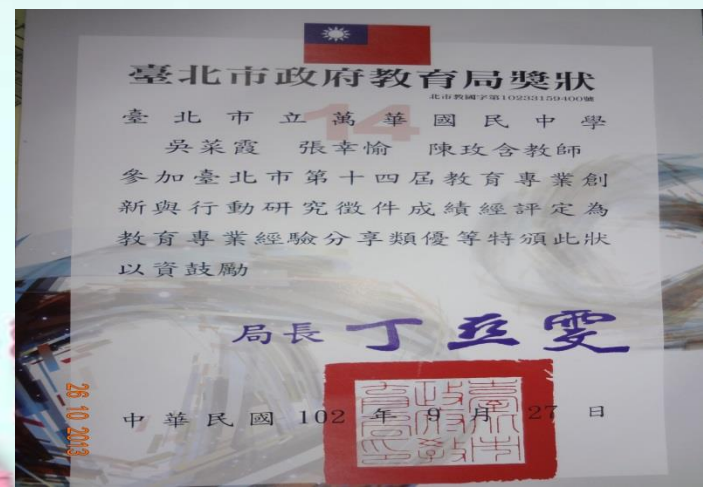 臺北市政府教育局獎狀
北市教國字第10233159400號
14
臺北市立萬華國民中學
吳菜霞 張幸愉 陳玫含教師
參加臺北市第十四屆教育專業創
新與行動研究徵件成績經評定為
教育專業經驗分享類優等特頒此狀
以資鼓勵
局長 丁亞雯
中華民國 102 年 9 月 27 日
臺北市政府教育局印
26 10 2013